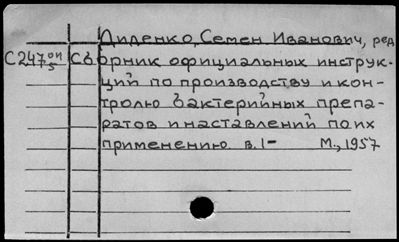 Диденко, Семен Иванович, ред
С247оп5 Сборник официальных инструк-
ций по производству и кон-
тролю бактерийных препа-
ратов и наставлений по их
применению в. 1- М., 1957